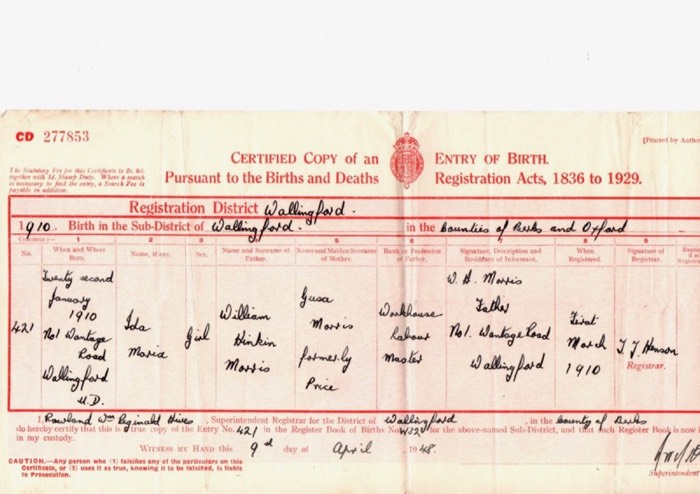 CD 277853
[Printed by Autho
CERTIFIED COPY of an ENTRY OF BIRTH.
Pursuant to the Births and Deaths Registration Acts, 1836 to 1929.
The Statutory Fee for this Certificate is 2s. 6d.
together with 1d. Stamp Duty. Where a search
is necessary to find the entry, a Search Fee is
payable in addition.
Registration District Wallingford.
1910. Birth in the Sub-District of Wallingford. in the Counties of Berks and Oxford
Columns:— 1 2 3 4 5 6 7 8 9
No. When and Where Born. Name, if any. Sex. Name and Surname of Father. Name and Maiden Surname of Mother. Rank or Profession of Father. Signature, Description and Residence of Informant. When Registered. Signature of Registrar.
421
Twenty second
January
1910
No1 Wantage
Road
Wallingford
U.D.
Ida
Maria
Girl
William
Hinkin
Morris
Morris
formerly
Price
Workhouse
Labour
Master
W. H. Morris
Father
No1. Wantage Road
Wallingford
First
March
1910
Henson
Registrar.
I, Rowland Wm Reginald Hives, Superintendent Registrar for the District of Wallingford, in the County of Berks
do hereby certify that this is a true copy of the Entry No. 421 in the Register Book of Births No. W32 for the above-named Sub-District, and that such Register Book is now l
in my custody.
WITNESS MY HAND this 9th day of April 1948.
CAUTION.—Any person who (1) falsifies any of the particulars on this
Certificate, or (2) uses it as true, knowing it to be falsified, is liable
to Prosecution.
Superintendent